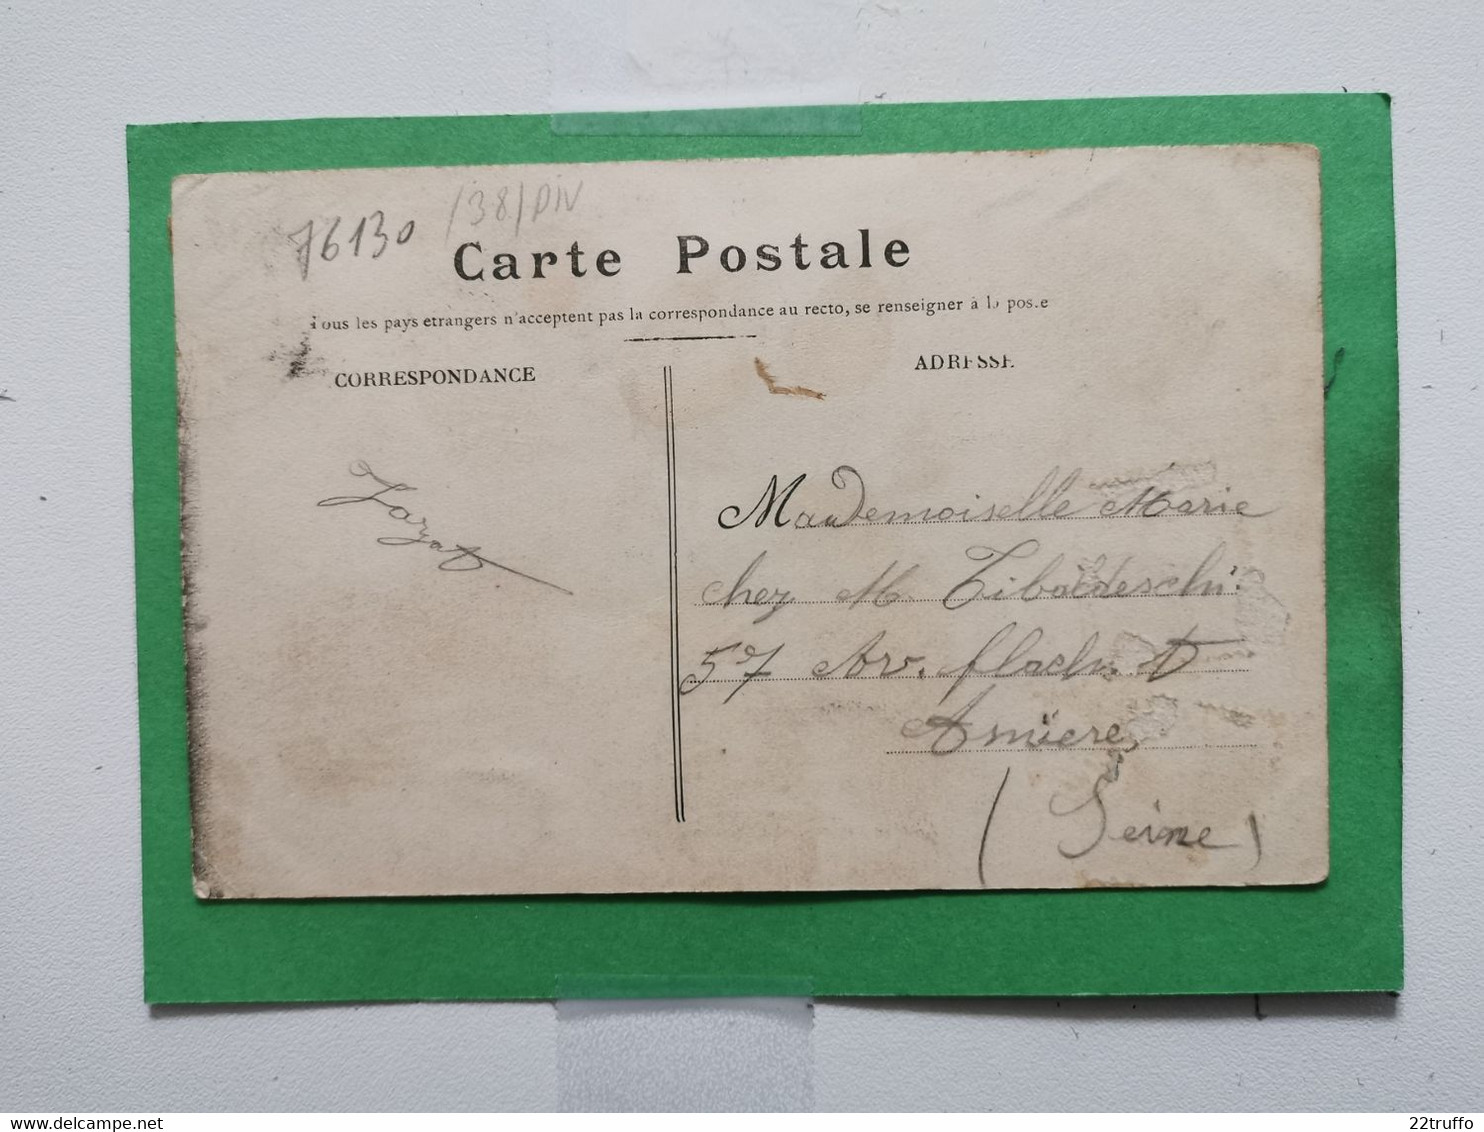 76130 /38/DIV
Carte Postale
Tous les pays etrangers n'acceptent pas la correspondance au recto, se renseigner à la poste
CORRESPONDANCE
ADRESSE
Mademoiselle Marie
chez M. Tibaldeschi
57 Av. flach
(Seine)
delcampe.net
22truffo